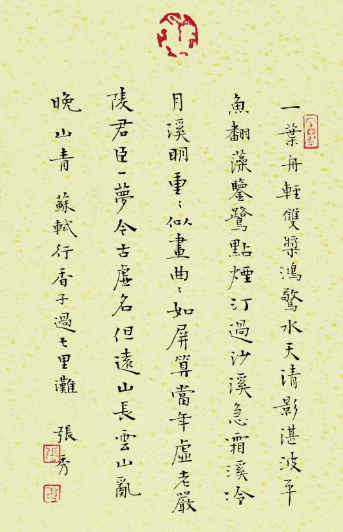 一葉舟輕雙槳鴻驚水天清影湛波平
魚翻藻鑒鷺點煙汀過沙溪急霜溪冷
月溪明重〻似畫曲〻如屏算當年虛老嚴
陵君臣一夢今古虛名但遠山長雲山亂
曉山青 蘇軾行香子過七里灘 張秀